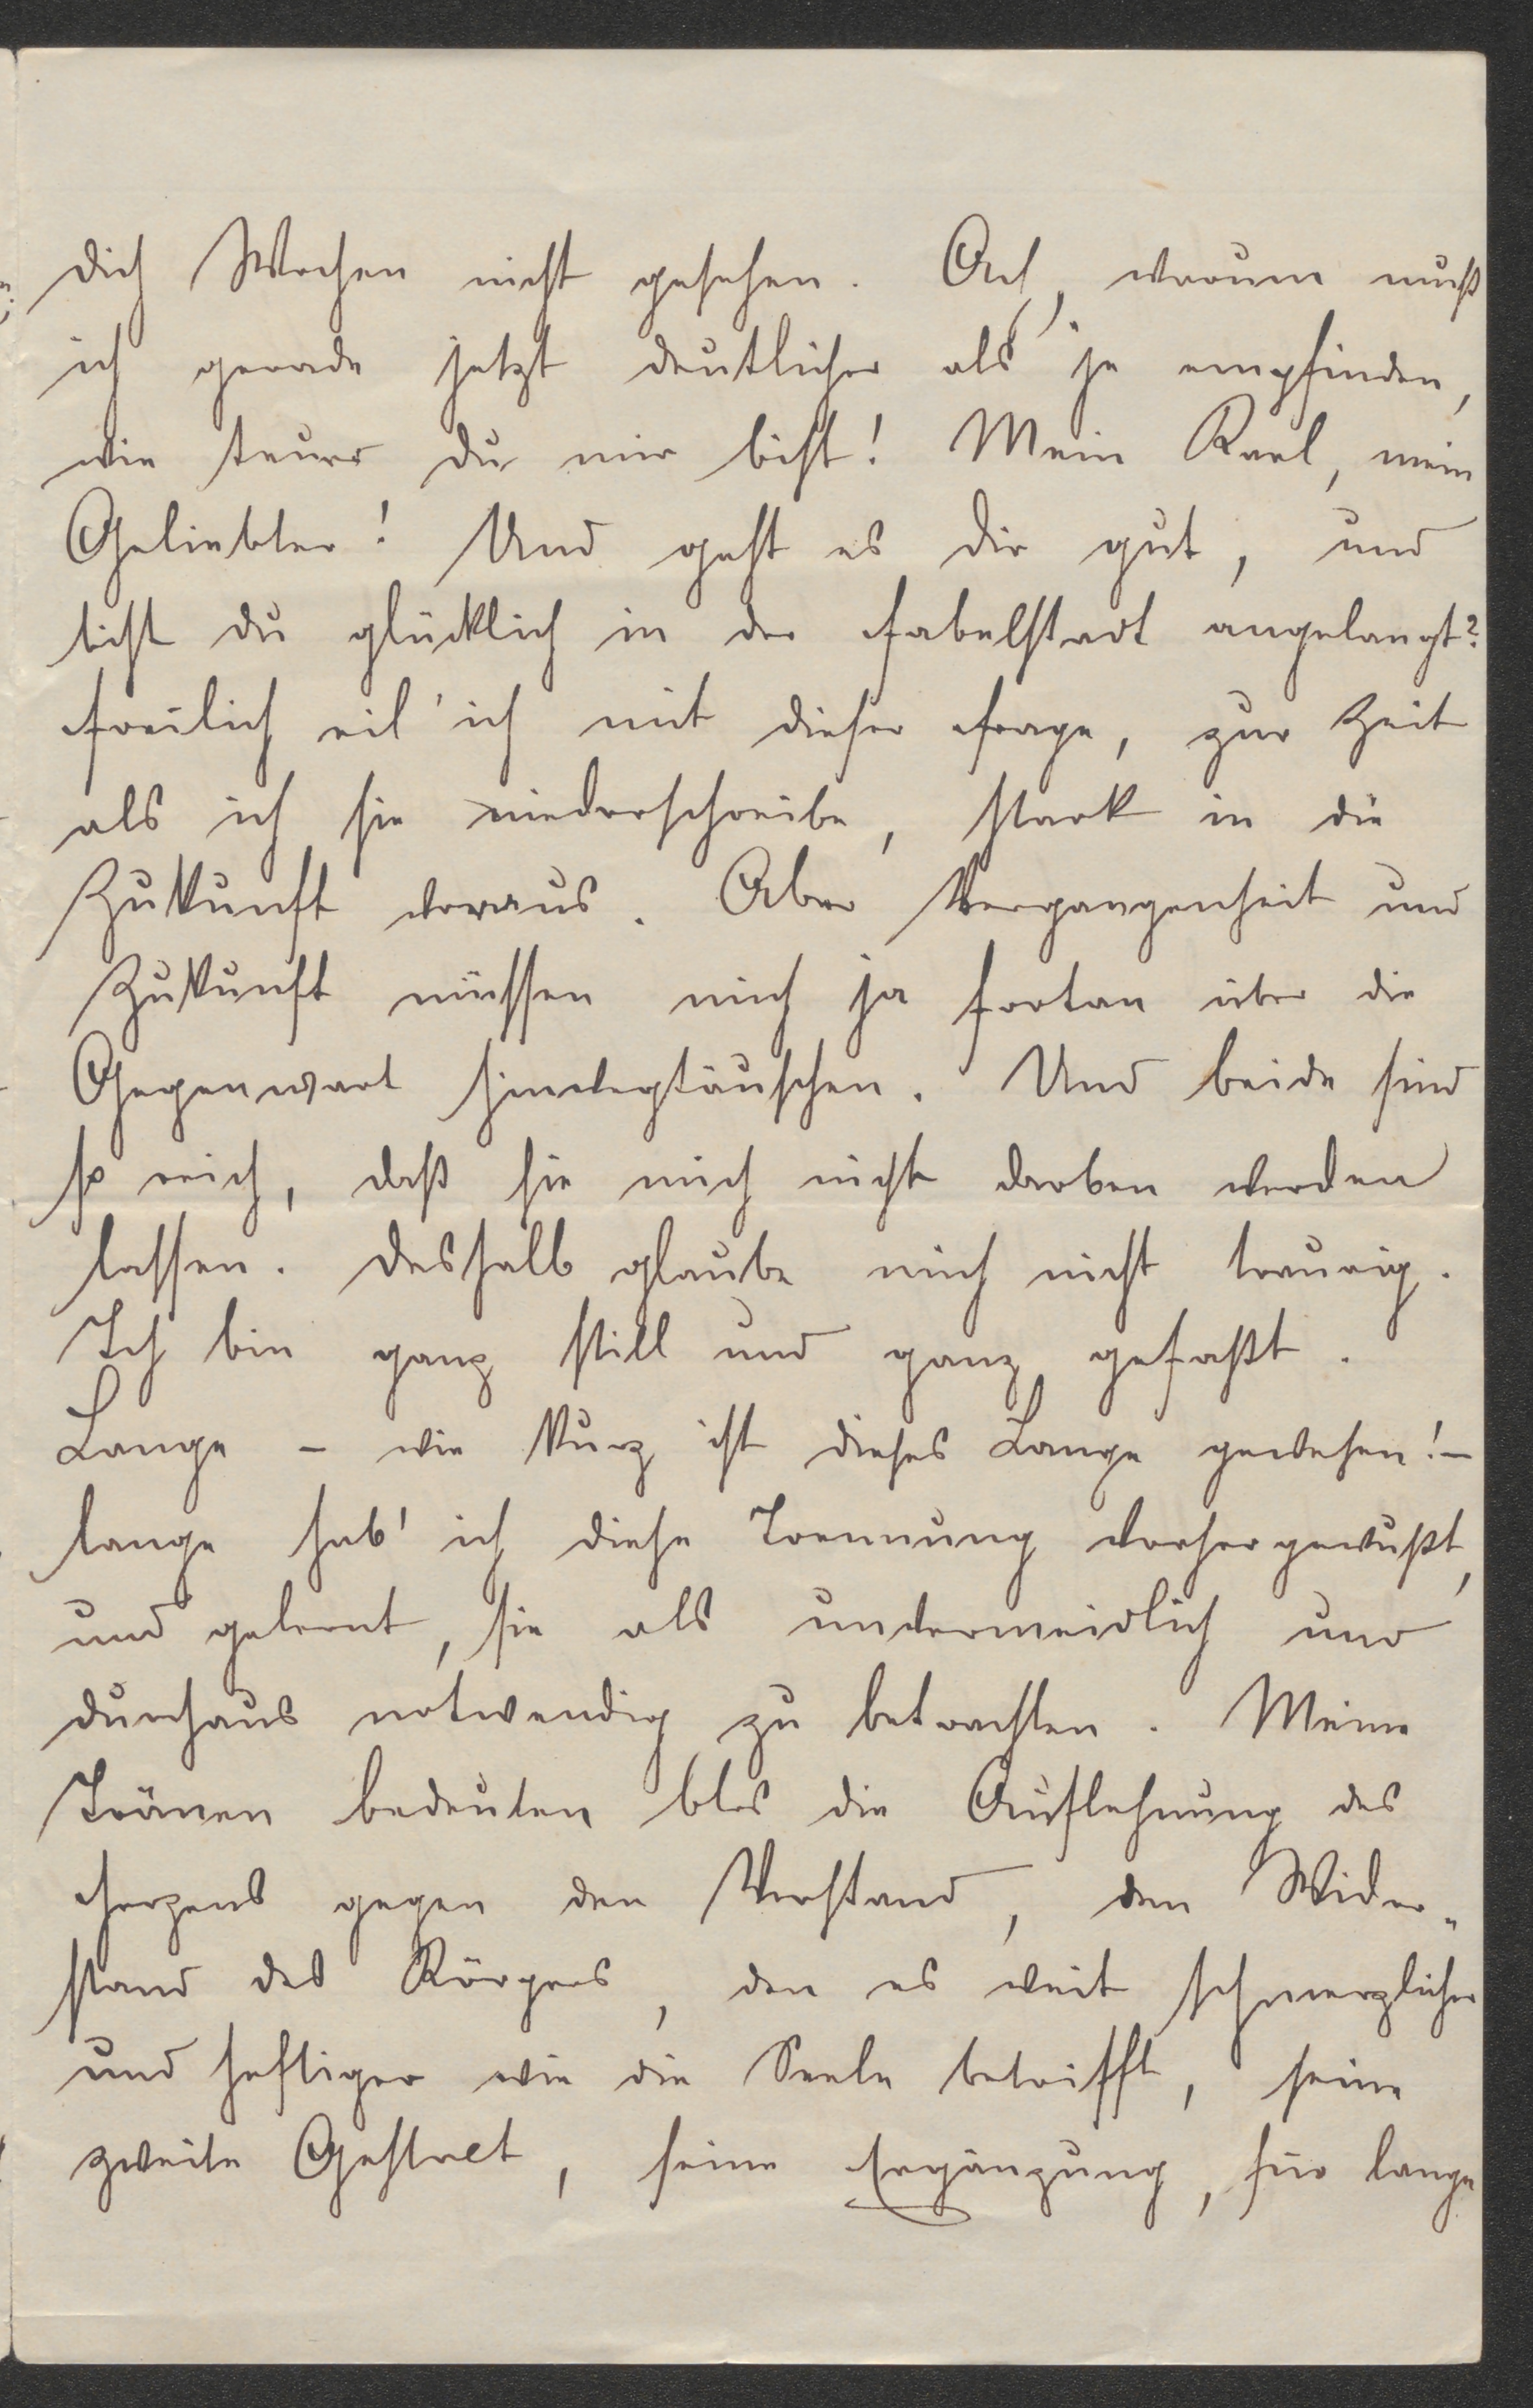 dich Wochen nicht gesehen. Ach, warum muß
ich gerade jetzt deutlicher als je empfinden,
wie teuer du mir bist! Mein Karl, mein
Geliebter! Und geht es dir gut, und
bist du glücklich in der Fabelstadt angelangt?
Freilich eil' ich mit dieser Frage, zur Zeit
als ich sie niederschreibe, stark in die
Zukunft voraus. Aber Vergangenheit und
Zukunft müssen mich ja fortan über die
Gegenwart hinwegtäuschen. Und beide sind
so reich, daß sie mich nicht darben werden
lassen. Deshalb glaube mich nicht traurig.
Ich bin ganz still und ganz gefaßt.
Lange – wie kurz ist dieses Lange gewesen! –
lange hab' ich diese Trennung vorhergewußt,
und gelernt, sie als unvermeidlich und
durchaus notwendig zu betrachten. Meine
Tränen bedeuten blos die Auflehnung des
Herzens gegen den Verstand, den Wider-
stand des Körpers, den es weit schmerzlicher
und heftiger wie die Seele betrifft, seine
zweite Gestalt, seine Ergänzung, für lange